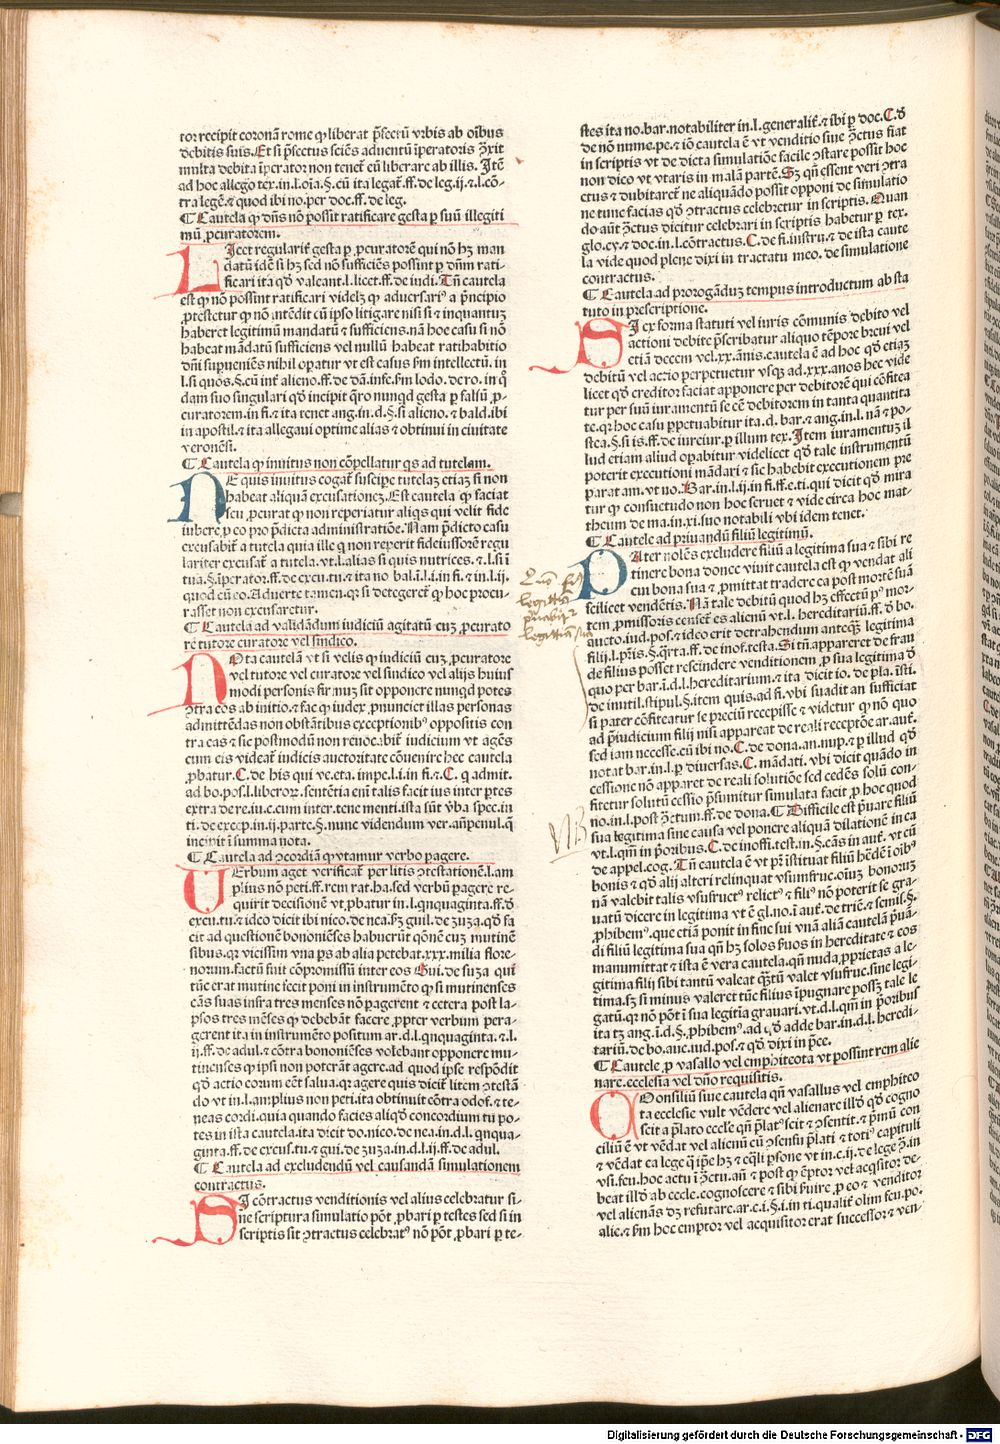 tor recipit coronā rome ꝙ liberat p̄fectū vrbis ab oībus
debitis suis. Et si p̄fectus sciēs aduentū īperatoris ꝯ̄xit
multa debita īperator non tenet᷑ cū liberare ab illis. Itē
ad hoc allego tex. in. l. oīa. §. cū ita legat᷑. ff. de leg. ij. ⁊. l. cō-
tra legē. ⁊ quod ibi no. per doc. ff. de leg.
¶ Cautela ꝙ dn̄s nō possit ratificare gesta ꝑ suū illegiti
mū ꝓcuratorem.
LIcet regularit᷑ gesta ꝑ ꝓcuratorē qui nō hꝫ man
datū idē si hꝫ sed nō sufficiēs possint ꝑ dn̄m rati-
ficari ita qd̛ valeant. l. licet. ff. de iudi. Tn̄ cautela
est ꝙ nō possint ratificari videlꝫ ꝙ aduersariꝰ a p̄ncipio
ꝓtestetur ꝙ nō intēdit cū ipso litigare nisi si ⁊ inquantuꝫ
haberet legitimū mandatū ⁊ sufficiens. nā hoc casu si nō
habeat mādatū sufficiens vel nullū habeat ratihabitio
dn̄i supueniēs nihil oꝑatur vt est casus ẜm intellectū. in
l. si quos. §. cū int᷑ alieno. ff. de dā. infe. ẜm lodo. de ro. in q̊
dam suo singulari qd̛ incipit q̄ro nunqd gesta ꝑ falsū ꝓ-
curatorem. in fi. ⁊ ita tenet ang. in. d. §. si alieno. ⁊ bald. ibi
in apostil. ⁊ ita allegaui optime alias ⁊ obtinui in ciuitate
veronēsi.
¶ Cautela ꝙ inuitus non cōpellatur qs ad tutelam.
NE quis inuitus cogat᷑ suscipe tutelaꝫ etiaꝫ si non
habeat aliquā excusationeꝫ. Est cautela ꝙ faciat
seu ꝓcurat ꝙ non reperiatur aliqs qui velit fide
iubere ꝑ eo pro p̄dicta administratiōe. Nam p̄dicto casu
excusabit᷑ a tutela quia ille q̄ non reperit fideiussorē regu
lariter excusat᷑ a tutela. vt. l. alias si quis nutrices. ⁊. l. si i
tua. §. īperator. ff. de excu. tu. ⁊ ita no bal. ā. l. i. in fi. ⁊ in. l. ij.
quod cū eo. Aduerte tamen. qꝛ si detegeret᷑ ꝙ hoc procu-
rasset non excusaretur.
¶ Cautela ad validādum iudiciū agitatū cuꝫ ꝓcurato
re tutore curatore vel sindico.
NOta cautelā vt si velis ꝙ iudiciū cuꝫ ꝓcuratore
vel tutore vel curatore vel sindico vel alijs huius
modi personis firmuꝫ sit opponere nunqd potes
ꝯtra eos ab initio. ⁊ fac ꝙ iudex ꝓnunciet illas personas
admittēdas non obstātibus exceptionibꝰ oppositis con
tra eas ⁊ sic postmodū non reuocabit᷑ iudicium vt agēs
cum eis videat᷑ iudicis auctoritate cōuenire hec cautela
ꝓbatur. C. de his qui ve. eta. impe. l. i. in fi. ⁊. C. q admit.
ad bo. pos. l. liberoꝝ. sentētia eni talis facit ius inter ꝑtes
extra de re. iu. c. cum inter. tene menti. ista sūt v̄ba spec. in
ti. de excep. in. ij. parte. §. nunc videndum ver. an̄penul. q̄
incipit i summa nota.
¶ Cautela ad ꝯcordiā ꝙ vtamur verbo pagere.
VErbum aget verificat᷑ per litis ꝯtestationē. l. am
plius non peti. ff. rem rat. ha. sed verbū pagere re-
quirit decisionē vt ꝓbatur in. l. qnquaginta. ff. d̛
excu. tu. ⁊ ideo dicit ibi nico. de nea. ꝑꝫ guil. de ꝫuꝫa. qd̛ fa
cit ad questionē bononiēses habuerūt qōnē cuꝫ mutinē
sibus. qꝛ vicissim vna ps ab alia petebat. xxx. milia flore-
norum. factū fuit cōpromissū inter eos Gui. de suza qui
tūc erat mutine fecit poni in instrumēto ꝙ si mutinenses
cās suas infra tres menses nō pagerent ⁊ cetera post la-
psos tres mēses ꝙ debebāt facere ꝓpter verbum pera-
gerent ita in instrumēto positum ar. d. l. qnquaginta. ⁊. l.
ij. ff. de adul. ⁊ cōtra bononiēses volebant opponere mu-
tinenses ꝙ ipsi non poterāt agere. ad quod ipse respōdit
qd̛ actio eorum eēt salua. qꝛ agere quis dicit᷑ litem ꝯtestā
do vt in. l. amplius non peti. ita obtinuit cōtra odof. ⁊ te-
neas cordi. quia quando facies aliqd̛ concordium tu po-
tes in ista cautela. ita dicit do. nico. de nea. in. d. l. qnqua-
ginta. ff. de excus. tu. ⁊ gui. de ꝫuꝫa. in. d. l. ij. ff. de adul.
¶ Cautela ad excludendū vel causandā simulationem
contractus.
SI cōtractus venditionis vel alius celebratur si-
ne scriptura simulatio pōt ꝓbari ꝑ testes sed si in
scriptis sit ꝯtractus celebratꝰ nō pōt ꝓbari ꝑ te-
stes ita no. bar. notabiliter in. l. generalit᷑. ⁊ ibi ꝑ doc. C. d̛
de nō nume. pe. ⁊ iō cautela ē vt venditio siue ꝯ̄ctus fiat
in scriptis vt de dicta simulatiōe facile ꝯstare possit hoc
non dico vt vtaris in malā partē. Sꝫ qn̄ essent veri ꝯtra
ctus ⁊ dubitaret᷑ ne aliquādo possit opponi de simulatio
ne tunc facias qd̛ ꝯtractus celebretur in scriptis. Quan
do aūt ꝯ̄ctus dicitur celebrari in scriptis habetur ꝑ tex.
glo. cy. ⁊ doc. in. l. cōtractus. C. de fi. instru. ⁊ de ista caute
la vide quod plene dixi in tractatu meo. de simulatione
contractus.
¶ Cautela ad prorogāduꝫ tempus introductum ab sta
tuto in prescriptione.
SI ex forma statuti vel iuris cōmunis debito vel
actioni debite p̄scribatur aliquo tēpore breui vel
etiā decem vel. xx. ānis. cautela ē ad hoc qd̛ etiaꝫ
debitū vel actio perpetuetur vsqꝫ ad. xxx. anos hec vide
licet qd̛ creditor faciat apponere per debitorē qui cōfitea
tur per suū iuramentū se eē debitorem in tanta quantita
te. qꝛ hoc casu ꝓpetuabitur ita. d. bar. ⁊ ang. in. l. nā ⁊ po-
stea. §. si is. ff. de iureiur. ꝑ illum tex. Item iuramentuꝫ il
lud etiam aliud oꝑabitur videlicet qd̛ tale instrumentū
poterit executioni mādari ⁊ sic habebit executionem pre
paratam. vt no. Bar. in. l. ij. in fi. ff. e. ti. qui dicit qd̛ mira
tur ꝙ consuetudo non hoc seruet ⁊ vide circa hoc mat-
theum de ma. in. xi. suo notabili vbi idem tenet.
¶ Cautele ad priuandū filiū legitimū.
PAter nolēs excludere filiū a legitima sua ⁊ sibi re
tinere bona donec viuit cautela est ꝙ vendat ali
cui bona sua ⁊ ꝓmittat tradere ea post mortē suā
scilicet vendētis. Nā tale debitū quod hꝫ effectū pꝰ mor-
tem ꝓmissoris censet᷑ es alienū vt. l. hereditariū. ff. d̛ bo.
aucto. iud. pos. ⁊ ideo erit detrahendum anteqꝫ legitima
filij. l. pr̄is. §. q̄rta. ff. de inof. testa. Si tn̄ appareret de frau
de filius posset rescindere venditionem ꝓ sua legitima d̛
quo per bar. i. d. l. hereditarium. ⁊ ita dicit io. de pla. īsti.
de inutil. stipul. §. item quis. ad fi. vbi suadit an sufficiat
si pater cōfiteatur se preciū recepisse ⁊ videtur ꝙ nō quo
ad p̄iudicium filij nisi appareat de reali receptōe ar. aut.
sed iam necesse. cū ibi no. C. de dona. an. nup. ⁊ ꝑ illud qd̛
notat bar. in. l. ꝑ diuersas. C. mādati. vbi dicit quādo in
cessione nō apparet de reali solutiōe sed cedēs solū con-
fitetur solutū cessio p̄sumitur simulata facit ꝓ hoc quod
no. in. l. post ꝯ̄ctum. ff. de dona. ¶ Difficile est p̄uare filiū
sua legitima sine causa vel ponere aliquā dilationē in ea
vt. l. qm̄ in p̄oribus. C. de inoffi. test. in. §. cās in aut. vt cū
de appel. cog. Tn̄ cautela ē vt pr̄ īstituat filiū hēdē i oībꝰ
bonis ⁊ qd̛ alij alteri relinquat vsumfruc. oiuꝫ bonoruꝫ
nā valebit talis vsufructꝰ relictꝰ ⁊ filiꝰ nō poterit se gra-
uatū dicere in legitima vt ē gl. no. ī aut᷑. de triē. ⁊ semis. §.
ꝓhibemꝰ. que etiam ponit in fine sui vnā aliā cautelā p̄uā-
di filiū legitima sua qn̄ hꝫ solos ẜuos in hereditate ⁊ eos
manumittat ⁊ ista ē vera cautela. qn̄ nuda ꝓprietas a le-
gitima filij sibi tantū valeat qꝫtū valet vsufruc. sine legi-
tima. sꝫ si minus valeret tūc filius īpugnare possꝫ tale le
gatū. qꝛ nō pōt ī sua legitīa grauari. vt. d. l. qm̄ in p̄oribus
ita tꝫ ang. i. d. §. ꝓhibemꝰ. ad qd̛ adde bar. in. d. l. heredi-
tariū. de bo. auc. iud. pos. ⁊ qd̛ dixi in p̄ce.
¶ Cautele ꝓ vasallo vel emphiteota vt possint rem alie
nare. ecclesia vel dn̄o requisitis.
COnsiliū siue cautela qn̄ vasallus vel emphiteo
ta ecclesie vult vēdere vel alienare illd̛ qd̛ cogno
scit a p̄lato eccl̄e qn̄ p̄latꝰ scit ⁊ ꝯsentit. ⁊ p̄mū con
ciliū ē vt vēdat vel alienū cū ꝯsensu p̄lati ⁊ totiꝰ capituli
⁊ vēdat ea lege q̄ ip̄e hꝫ ⁊ eq̄li ꝑsone vt in. c. ij. de lege ꝯ̄. in
vsi. feu. hoc actu i ꝯ̄ctu. an̄ ⁊ post ꝙ ēptor vel acq̄sitor de-
beat illd̛ ab eccle. cognoscere ⁊ sibi ẜuire ꝓ eo ⁊ venditor
vel alienās dꝫ refutare. ar. c. i. §. i. in ti. qualit᷑ olim feu. po.
alic. ⁊ ẜm hoc emptor vel acquisitor erat successor ⁊ ven-
legittim
priuabitur
legittima sua
NB
Digitalisierung gefördert durch die Deutsche Forschungsgemeinschaft - DFG